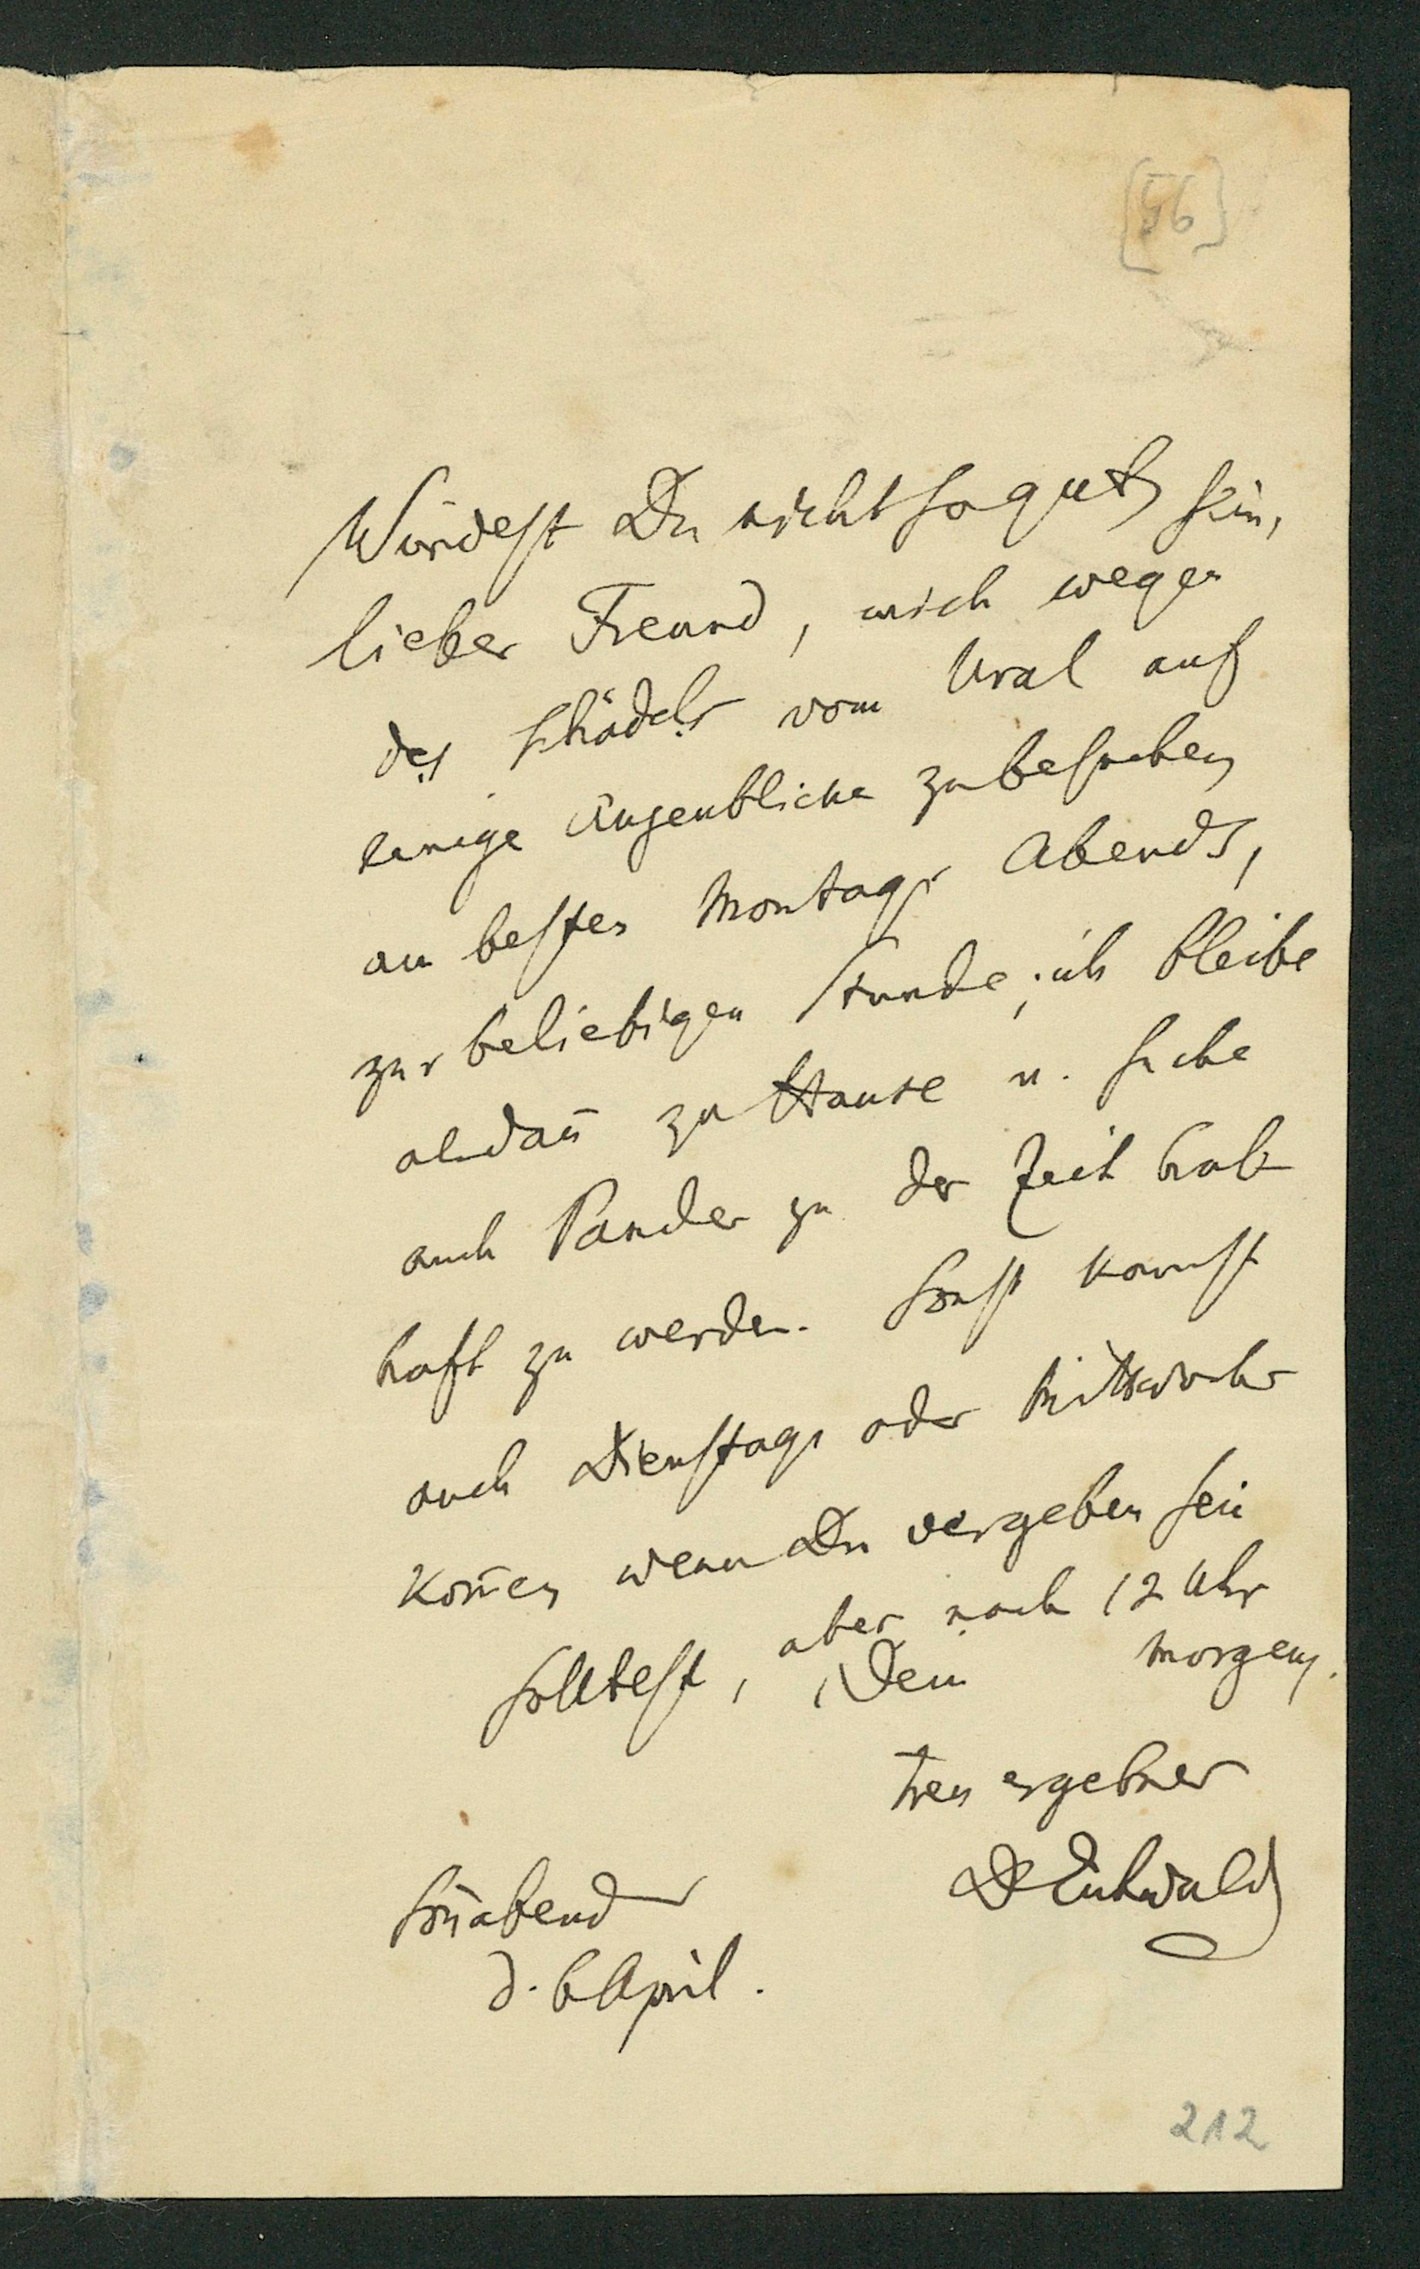 [56]
Würdest Du nicht so gut sein,
lieber Freund, mich wegen
des Schädels vom Ural auf
einige Augenblicke zu besuchen
am besten Montags Abends,
zur beliebigen Stunde; ich bleibe
alsdan̄ zu Hause u. suche
auch Pander zu der Zeit hab
haft zu werden. Sonst kannst
auch Dienstags oder Mittwochs
kom̄en wenn Du vergeben sein
solltest, aber nach 12 Uhr
Dein morgens.
treu ergebner
D Eichwald
Son̄abend
d. 6 April.
212